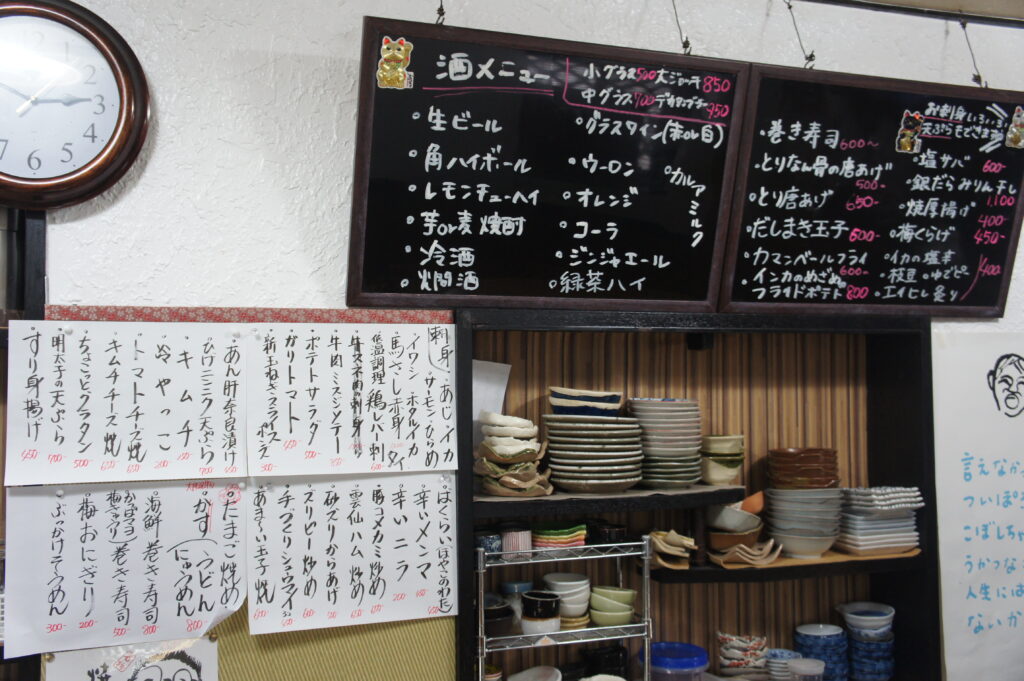 酒メニュー
小グラス500 大ジョッキ850
中グラス700 デカタンブラー950
・生ビール
・角ハイボール
・レモンチューハイ
・芋or麦焼酎
・冷酒
・燗酒
・グラスワイン(赤or白)
・ウーロン
・オレンジ
・コーラ
・ジンジャエール
・緑茶ハイ
・カルアミルク
お刺身いろいろ
天ぷらもできます
・巻き寿司 600〜
・とりなん骨の唐あげ 500-
・とり唐あげ 650-
・だしまき玉子 600-
・カマンベールフライ 600-
・インカのめざめ
フライドポテト 800
・塩サバ 600-
・銀だらみりん干し 1,100
・焼厚揚げ 400-
・梅くらげ 450-
・イカの塩辛
・枝豆 ・ゆでピー
・エイヒレ炙り 400-
刺身 ・あじ・イカ
・サーモン・ひらめ
・イワシ ・ホタルイカ
・馬さし赤身 ・タイ
・低温調理 鶏レバー刺 600
・牛肉ミスジステーキ
・ポテトサラダ 500
・かりトマト 450
・新玉ねぎスライスポンズ 300
・あん肝奈良漬け 700
・ひげニンニク天ぷら 700
・キムチ
・冷やっこ 200
・トマトチーズ焼 660
・キムチチーズ焼 600
・ちょこっとグラタン 500
・明太子の天ぷら 500
・すり身揚げ 450
・ばくらい(ほやこのわた)
・辛いメンマ
・辛いニラ 200
・豚コメカミ炒め
・雲仙ハム炒め
・砂ズリからあげ
・ズリピー炒め
・チヂミ
・あまうい玉子焼
・たまご焼め
・かすうどん
にゅうめん 800
・海鮮巻き寿司 800
・梅おにぎり 200
・ぶっかけそうめん 300
言えなか
ついぽ
こぼしちゃ
うかつな
人生には
ないか